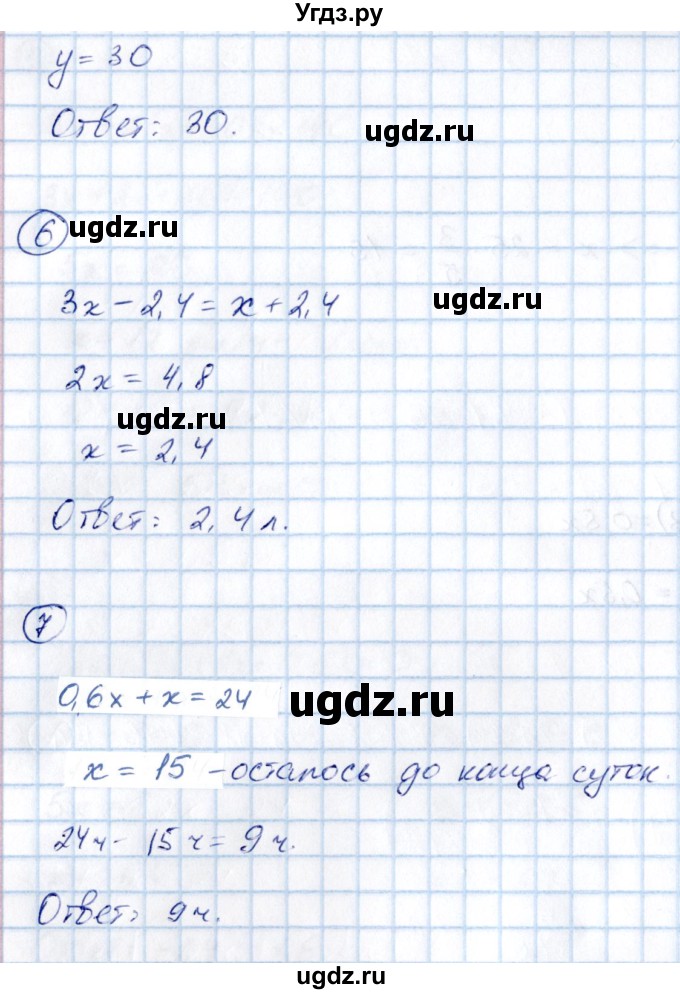 Угдз.ру
y = 30
Ответ: 30.
ugdz.ru
6 ugdz.ru
3x - 2,4 = x + 2,4
ugdz.ru
2x = 4,8
ugdz.ru
x = 2,4
Ответ: 2,4 л.
7
0,6x + x = 24
ugdz.ru
x = 15 - осталось до конца суток.
24ч - 15ч = 9ч.
Ответ: 9ч.
ugdz.ru